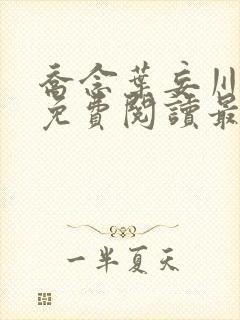 喬念葉妄川
免費閱讀最
一半夏天